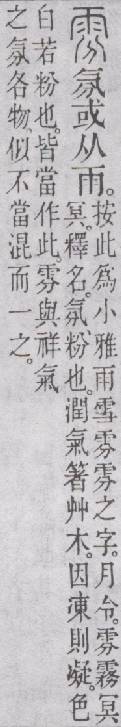 雰氛或从雨。按此爲小雅雨雪雰雰之字。月令。雰霧冥
冥。釋名。氛、粉也。潤氣箸艸木。因凍則凝。色
白若粉也。皆當作此。雰與祥氣
之氛各物。似不當混而一之。